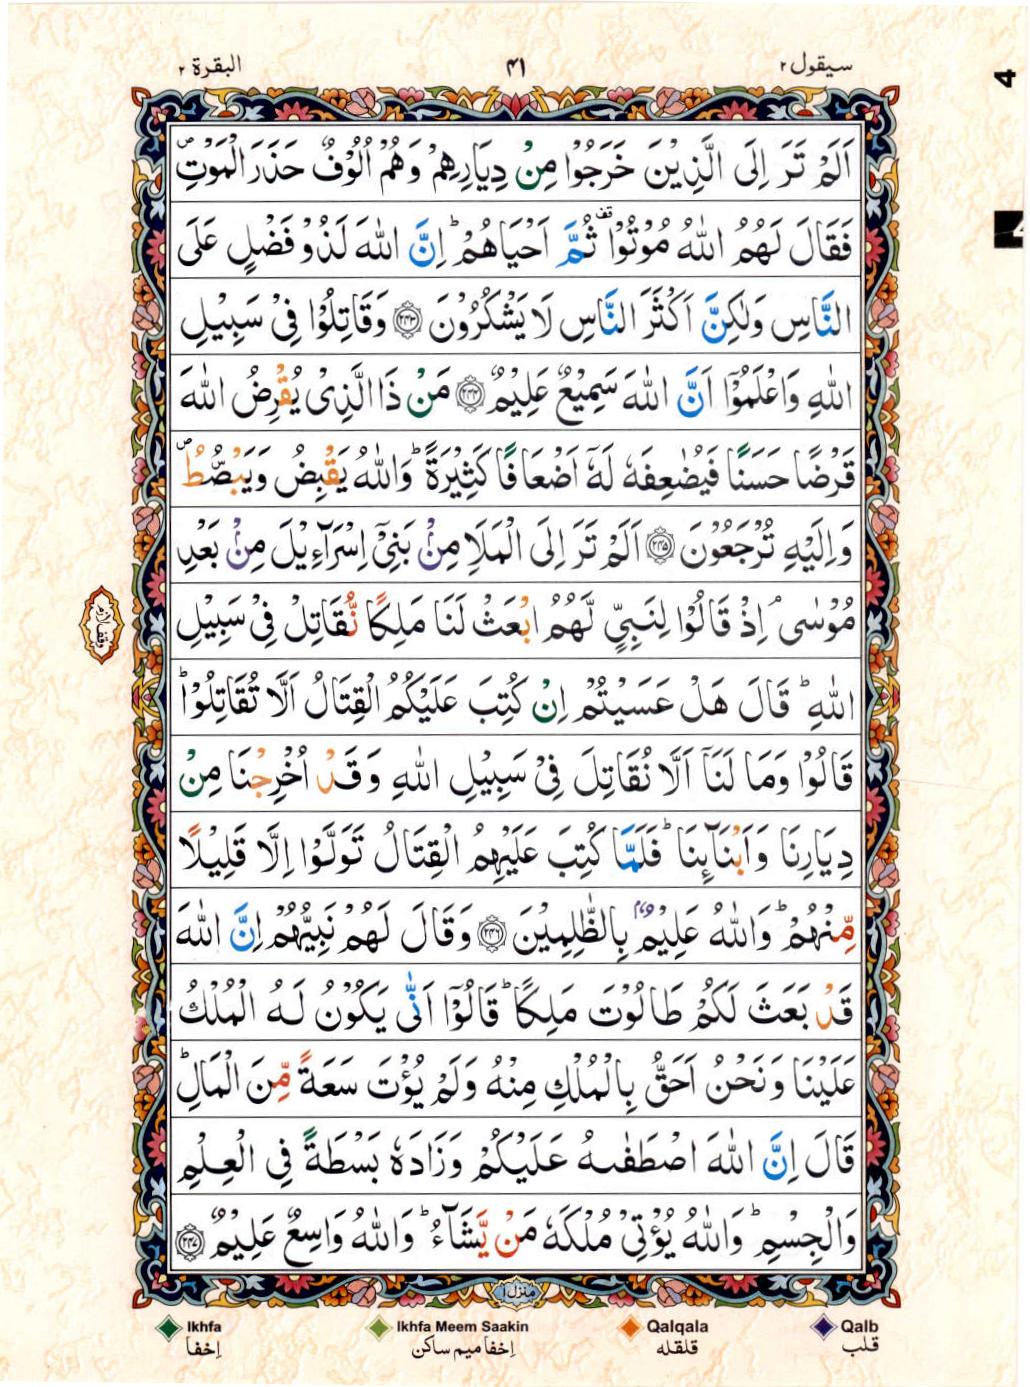 سيقول ٢
۴۱
البقرة ٢
4
اَلَمۡ تَرَ اِلَى الَّذِيۡنَ خَرَجُوۡا مِنۡ دِيَارِهِمۡ وَهُمۡ اُلُوۡفٌ حَذَرَ الۡمَوۡتِ ۖ
فَقَالَ لَهُمُ اللّٰهُ مُوۡتُوۡا ۟ ثُمَّ اَحۡيَاهُمۡ ؕ اِنَّ اللّٰهَ لَذُوۡ فَضۡلٍ عَلَى
النَّاسِ وَلٰـكِنَّ اَکۡثَرَ النَّاسِ لَا يَشۡکُرُوۡنَ ﴿۲۴۳﴾ وَقَاتِلُوۡا فِىۡ سَبِيۡلِ
اللّٰهِ وَاعۡلَمُوۡٓا اَنَّ اللّٰهَ سَمِيۡعٌ عَلِيۡمٌ ﴿۲۴۴﴾ مَنۡ ذَا الَّذِىۡ يُقۡرِضُ اللّٰهَ
قَرۡضًا حَسَنًا فَيُضٰعِفَهٗ لَهٗۤ اَضۡعَافًا کَثِيۡرَةً ؕ وَاللّٰهُ يَقۡبِضُ وَيَبۡصُّطُ ۖ
وَاِلَيۡهِ تُرۡجَعُوۡنَ ﴿۲۴۵﴾ اَلَمۡ تَرَ اِلَى الۡمَلَاِ مِنۡۢ بَنِىۡٓ اِسۡرَآءِيۡلَ مِنۡۢ بَعۡدِ
مُوۡسٰى ۘ اِذۡ قَالُوۡا لِنَبِىٍّ لَّهُمُ ابۡعَثۡ لَنَا مَلِکًا نُّقَاتِلۡ فِىۡ سَبِيۡلِ
اللّٰهِ ؕ قَالَ هَلۡ عَسَيۡتُمۡ اِنۡ کُتِبَ عَلَيۡکُمُ الۡقِتَالُ اَلَّا تُقَاتِلُوۡا ؕ
قَالُوۡا وَمَا لَنَآ اَلَّا نُقَاتِلَ فِىۡ سَبِيۡلِ اللّٰهِ وَقَدۡ اُخۡرِجۡنَا مِنۡ
دِيَارِنَا وَاَبۡنَآئِنَا ؕ فَلَمَّا کُتِبَ عَلَيۡهِمُ الۡقِتَالُ تَوَلَّوۡا اِلَّا قَلِيۡلًا
مِّنۡهُمۡ ؕ وَاللّٰهُ عَلِيۡمٌۢ بِالظّٰلِمِيۡنَ ﴿۲۴۶﴾ وَقَالَ لَهُمۡ نَبِيُّهُمۡ اِنَّ اللّٰهَ
قَدۡ بَعَثَ لَـکُمۡ طَالُوۡتَ مَلِکًا ؕ قَالُوۡٓا اَنّٰى يَكُوۡنُ لَهُ الۡمُلۡكُ
عَلَيۡنَا وَنَحۡنُ اَحَقُّ بِالۡمُلۡكِ مِنۡهُ وَلَمۡ يُؤۡتَ سَعَةً مِّنَ الۡمَالِ ؕ
قَالَ اِنَّ اللّٰهَ اصۡطَفٰٮهُ عَلَيۡکُمۡ وَزَادَهٗ بَسۡطَةً فِى الۡعِلۡمِ
وَالۡجِسۡمِ ؕ وَاللّٰهُ يُؤۡتِىۡ مُلۡکَهٗ مَنۡ يَّشَآءُ ؕ وَاللّٰهُ وَاسِعٌ عَلِيۡمٌ ﴿۲۴۷﴾
وقف لازم
منزل ۱
Ikhfa
اِخفا
Ikhfa Meem Saakin
اِخفا ميم ساكن
Qalqala
قلقله
Qalb
قلب